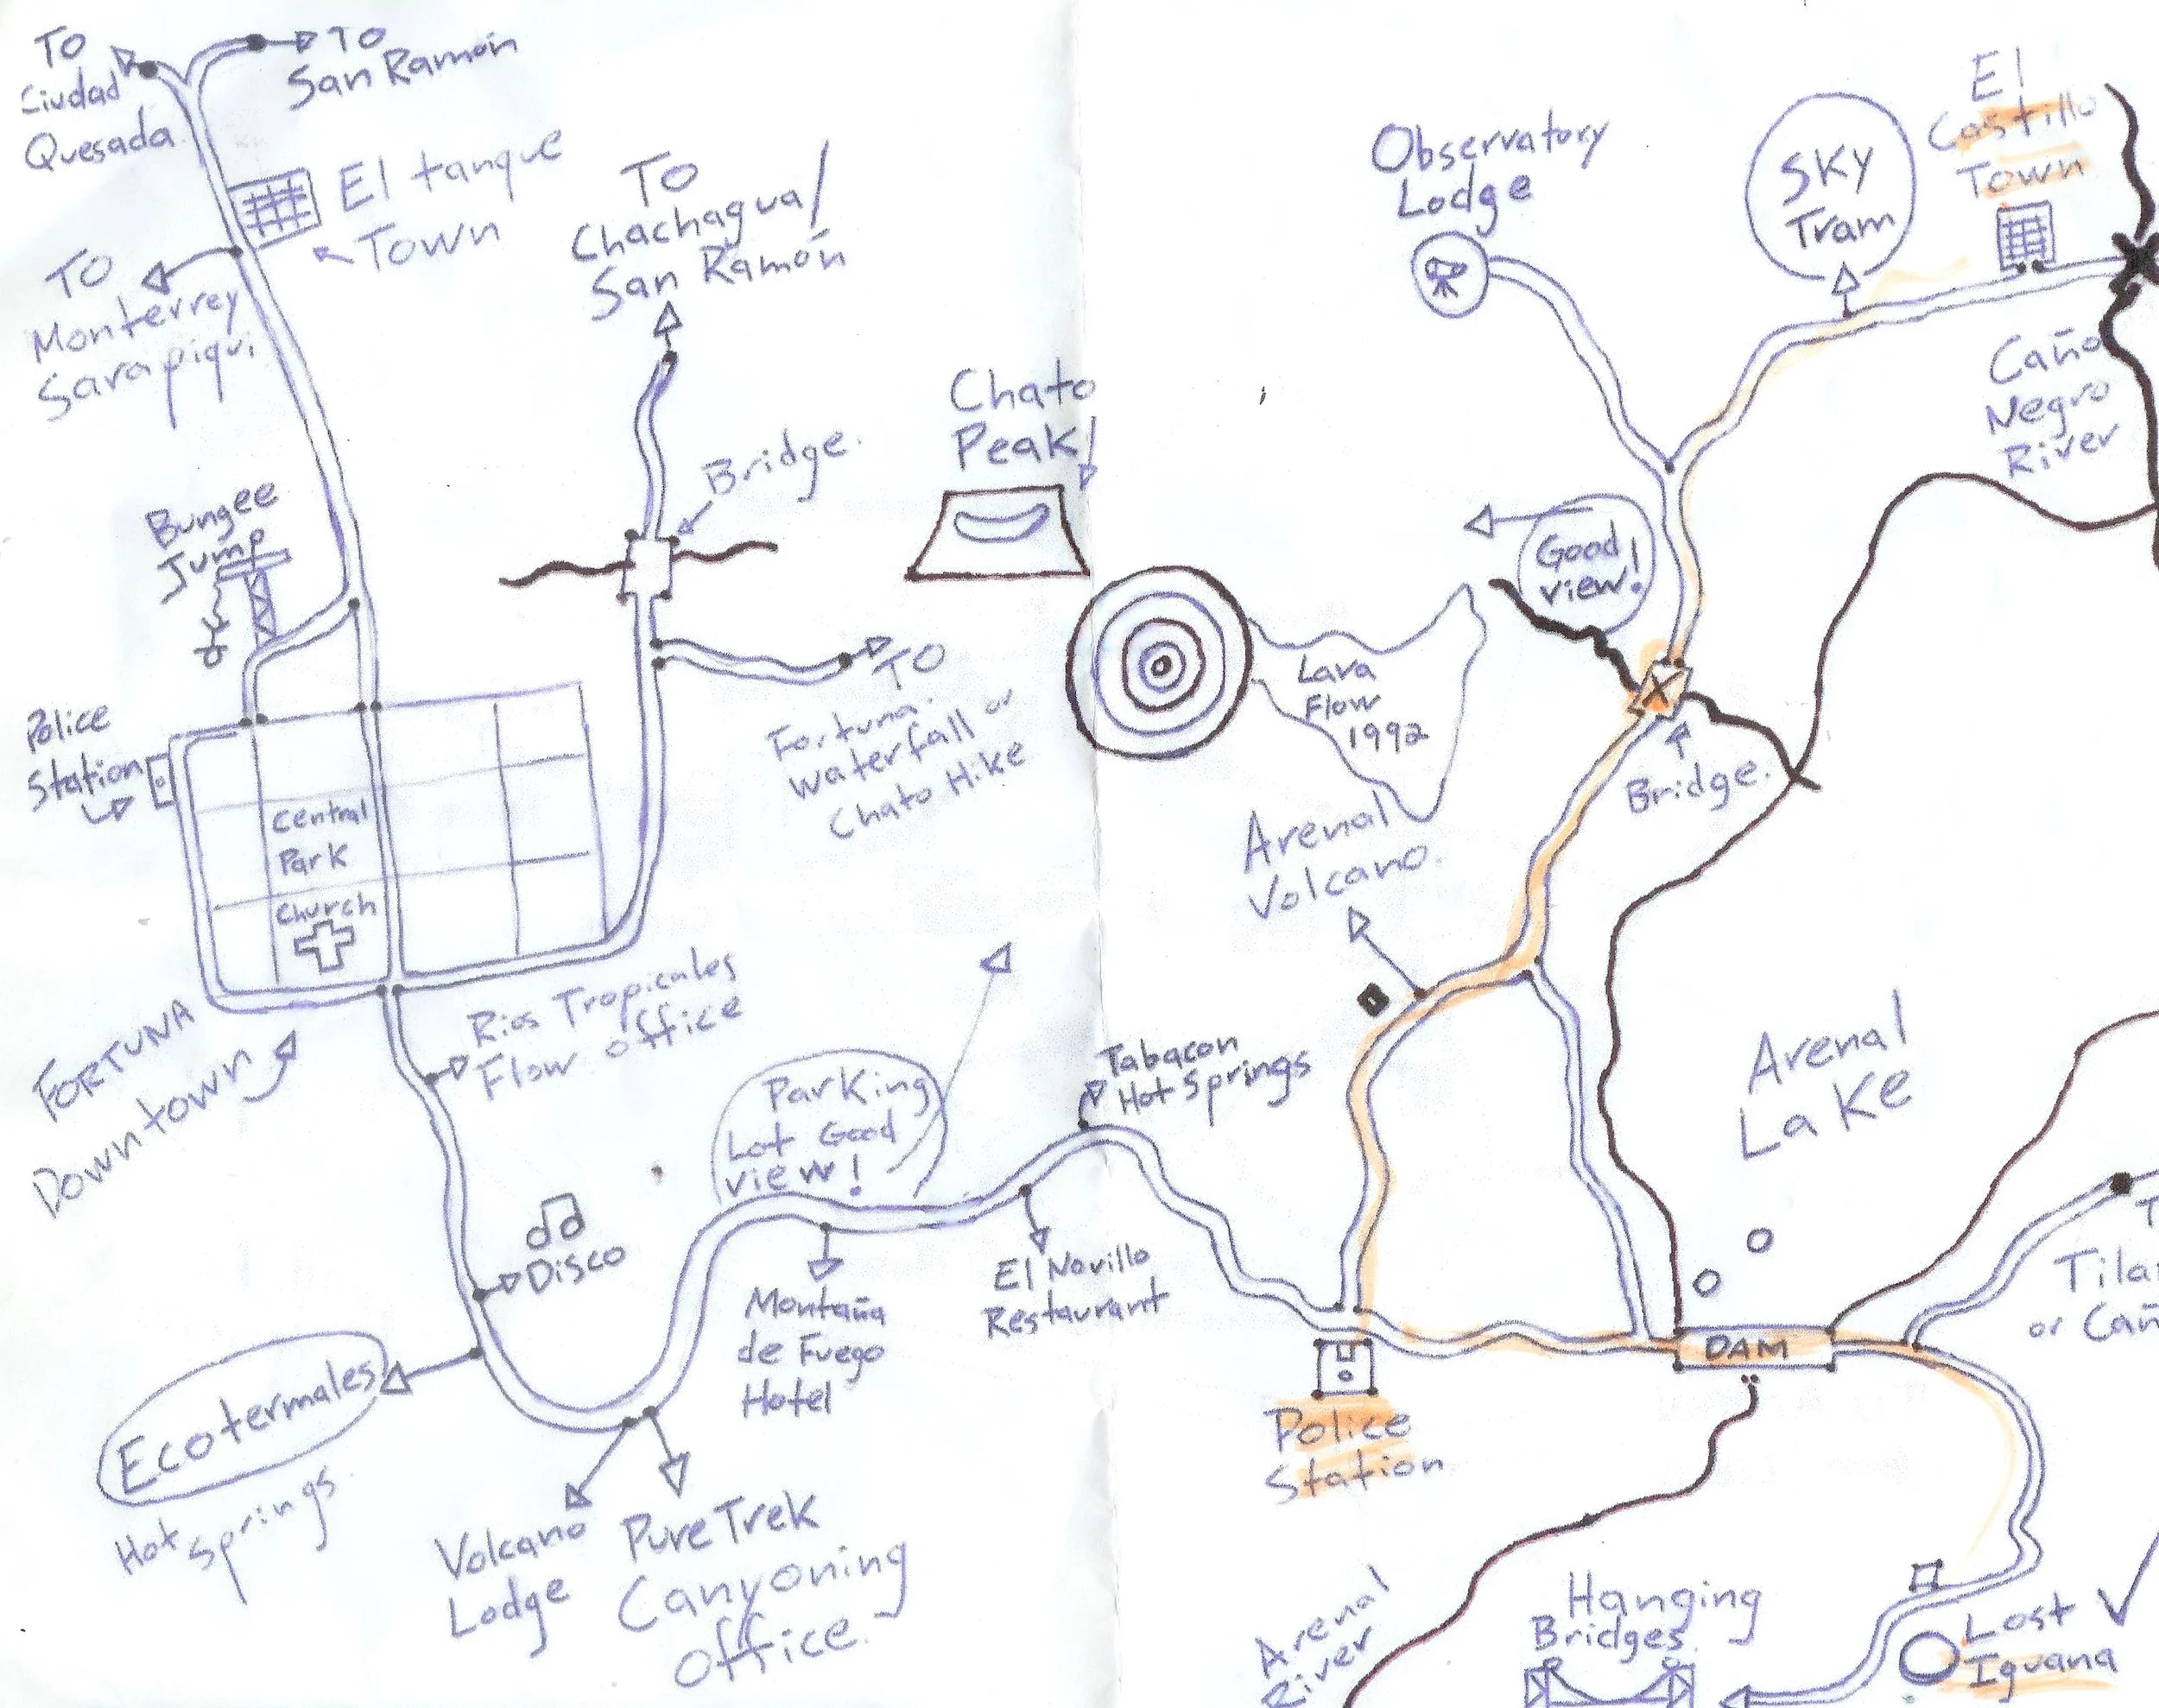 TO
Ciudad
Quesada
TO
San Ramón
El tanque
Town
TO
Monterrey
Sarapiqui
TO
Chachagua/
San Ramón
Bridge.
Bungee
Jump
Police
Station
Central
Park
Church
FORTUNA
Downtown
TO
Fortuna
waterfall or
Chato Hike
Chato
Peak
Rios Tropicales
Flow office
Parking
Lot Good
view!
Disco
Ecotermales
Hot Springs
Volcano
Lodge
Pure Trek
Canyoning
office.
Montaña
de Fuego
Hotel
El Novillo
Restaurant
Tabacon
Hot Springs
Lava
Flow
1992
Arenal
Volcano.
Observatory
Lodge
SKY
Tram
El
Castillo
Town
Caño
Negro
River
Good
view!
X
Bridge.
Arenal
Lake
Police
Station
DAM
T
Tila
or Cañ
Arenal
River
Hanging
Bridges.
Lost
Iguana